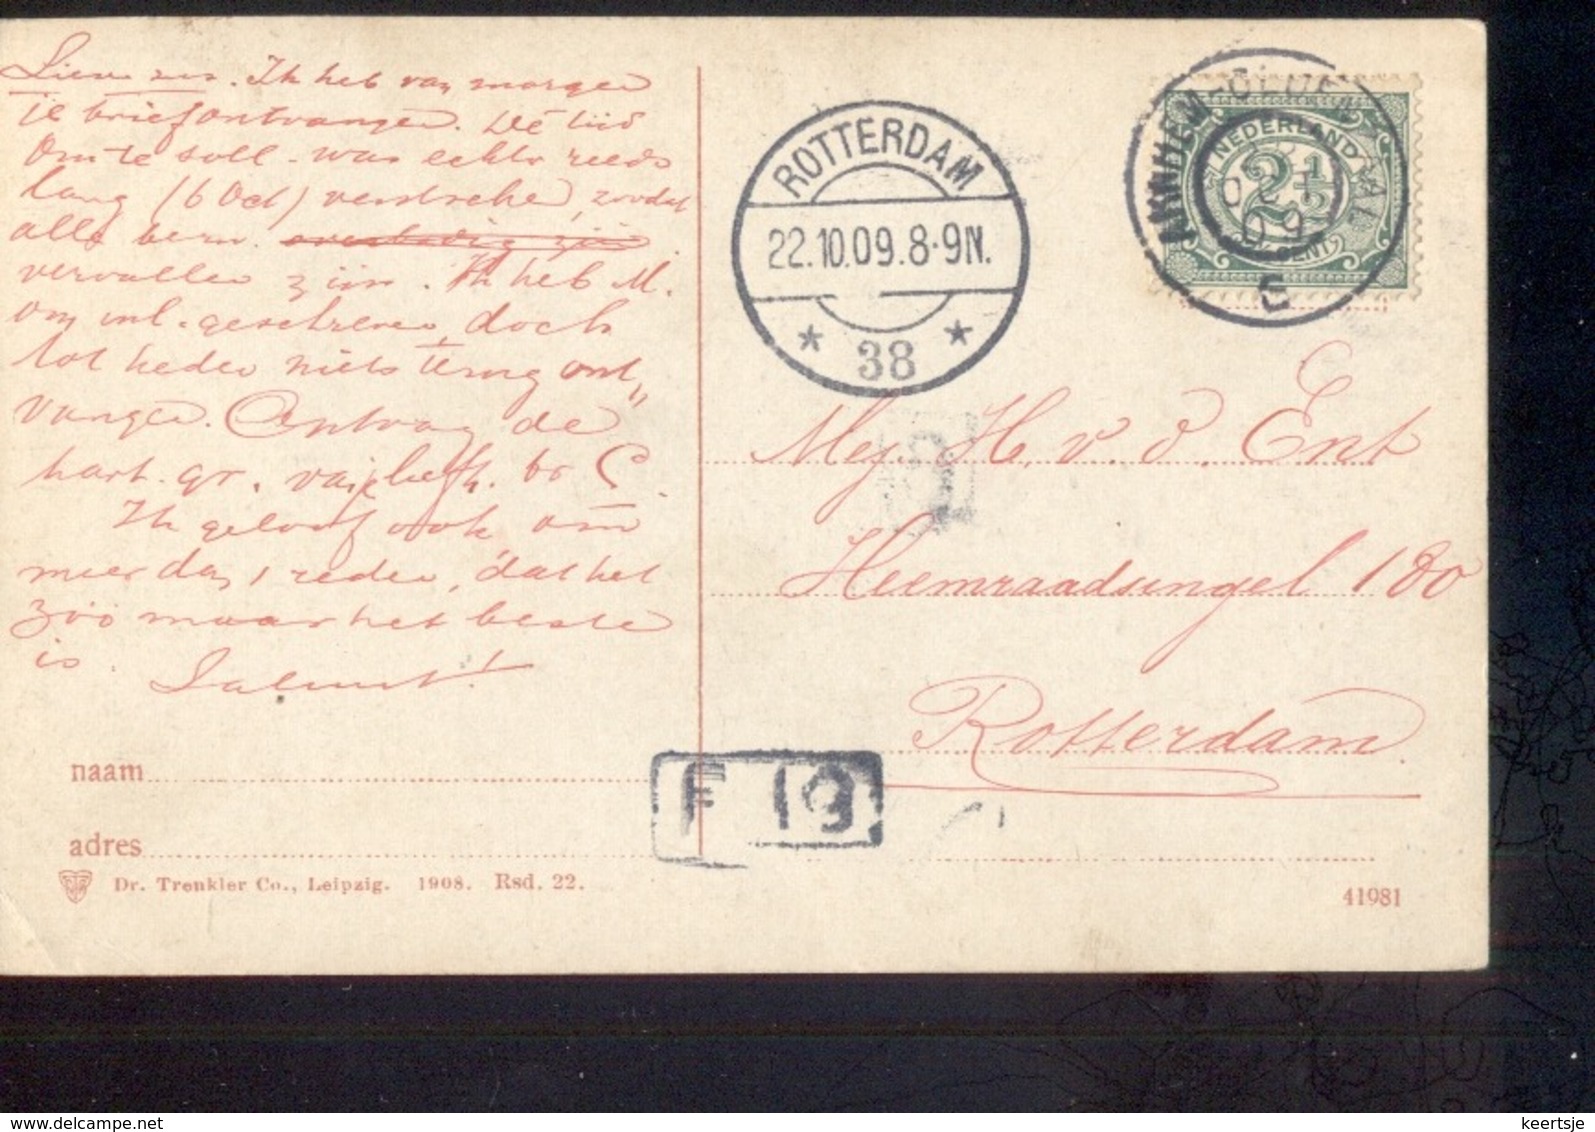 Lieve zus. Ik heb van morgen
je brief ontvangen. De tijd
om te soll. was echter reeds
lang (6 Oct) verstreken, zoodat
alle bem.
vervallen zijn. Ik heb M.
om inl. geschreven, doch
tot heden niets terug ont„
vangen. Ontvang de
hart. gr. van je liefh. br C.
Ik geloof ook om
meer dan 1 reden, dat het
zóó maar het beste
is. Salut!
naam
adres
Dr. Trenkler Co., Leipzig. 1908. Rsd. 22.
ROTTERDAM
22.10.09.8-9N.
* 38 *
ARNHEM-OLDENZAAL
OCT
09
C
NEDERLAND
2½
CENT
Mej. H. v. d. Ent
Heemraadsingel 180
Rotterdam.
F 19
41981
www.delcampe.net
keertsje